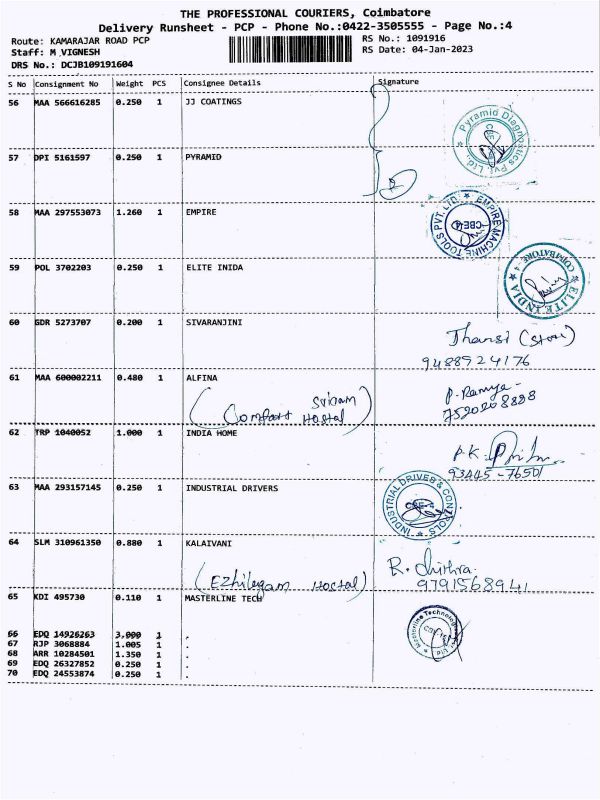 THE PROFESSIONAL COURIERS, Coimbatore
Delivery Runsheet - PCP - Phone No.:0422-3505555 - Page No.:4
Route: KAMARAJAR ROAD PCP RS No.: 1091916
Staff: M VIGNESH RS Date: 04-Jan-2023
DRS No.: DCJB109191604
S No Consignment No Weight PCS Consignee Details Signature
56 MAA 566616285 0.250 1 JJ COATINGS
Pyramid Diagnostics Pvt. Ltd., CBE
57 DPI 5161597 0.250 1 PYRAMID
58 MAA 297553073 1.260 1 EMPIRE
EMPIRE MACHINE TOOLS PVT. LTD. CBE-4
59 POL 3702203 0.250 1 ELITE INIDA
ELITE INDIA COIMBATORE - 4
60 GDR 5273707 0.200 1 SIVARANJINI
Thansi (Store)
9488924176
61 MAA 600002211 0.480 1 ALFINA
P. Ramya -
(Comfort Hostal)
62 TRP 1040052 1.000 1 INDIA HOME
P.K.
93445-76501
63 MAA 293157145 0.250 1 INDUSTRIAL DRIVERS
INDUSTRIAL DRIVES & CONTROLS CBE-4
64 SLM 310961350 0.880 1 KALAIVANI
R. Chithra.
(Ezhilegam Hostal)
9791568941
65 KDI 495730 0.110 1 MASTERLINE TECH
Masterline Technologies Pvt Ltd
66 EDQ 14926263 3.000 1 .
67 RJP 3068884 1.005 1 .
68 ARR 10284501 1.350 1 .
69 EDQ 26327852 0.250 1 .
70 EDQ 24553874 0.250 1 .